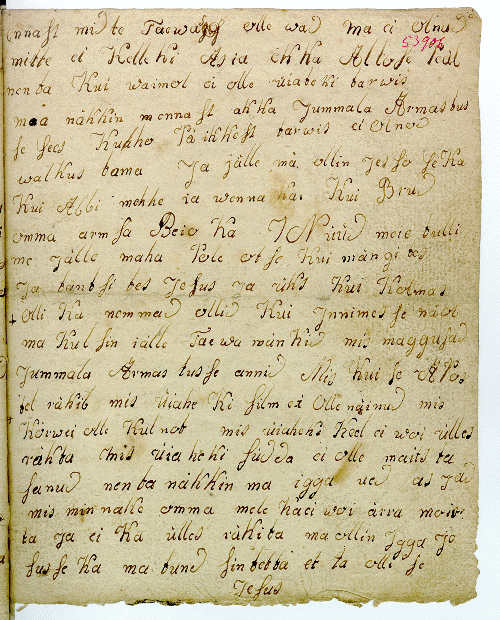 ennast mitte Taewas olle wad ma ei olnud
53906
mitte et Kelleki Asia ehk ka Allose peäl
nenda Kui waimol ei olle üiateki tarwis
maa nähhin monnast akka Jummala Armastus
se sees Kukko Paikkest tarwis ei olned
walkus tama Ja jälle mä ollin Jesso se Ka
Kui Abbi mehhe ia wenna ka. Kui Brud
omma arm sa Beio Ka Nüüd meie tulli
me jälle maha Pole ot se, Kui mängi des
Ja täntsi des Jesus Ja räks Kui Kolmas
olli Ka nemmad ollid Kui Innimesse näol
ma Kulsin jälle Taewa wänkid mis maggusad
Jummala Armastusse annid Mis Kui se Apos
tel räkib mis üiahe Ki silm ei olle näinud mis
Körwei olle Kulnot mis üiaheki Keel ei woi ülles
räkta mis üiaheki südda ei olle maits ta
sanud nenda nähhin ma igga ued as jad
mis minnahe omma mele kaei woi ärra mois
ta Ja ei Ka ülles räkita ma ollin Igga Je
susse Ka ma tund sin tedda et ta olli se
Jesus